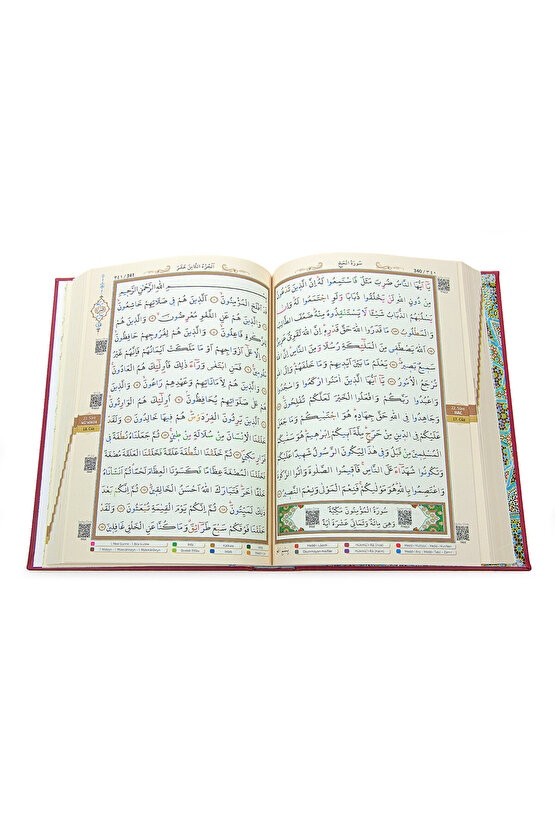 سُورَةُ الْحَجِّ
340 / ٣٤٠
يَٓا اَيُّهَا النَّاسُ ضُرِبَ مَثَلٌ فَاسْتَمِعُوا لَهُ اِنَّ الَّذ۪ينَ تَدْعُونَ
مِنْ دُونِ اللّٰهِ لَنْ يَخْلُقُوا ذُبَابًا وَلَوِ اجْتَمَعُوا لَهُ وَاِنْ
يَسْلُبْهُمُ الذُّبَابُ شَيْـًٔا لَا يَسْتَنْقِذُوهُ مِنْهُ ضَعُفَ الطَّالِبُ
وَالْمَطْلُوبُ مَا قَدَرُوا اللّٰهَ حَقَّ قَدْرِه۪ اِنَّ اللّٰهَ لَقَوِيٌّ عَز۪يزٌ
اَللّٰهُ يَصْطَف۪ي مِنَ الْمَلٰٓئِكَةِ رُسُلًا وَمِنَ النَّاسِ اِنَّ اللّٰهَ
سَم۪يعٌ بَص۪يرٌ يَعْلَمُ مَا بَيْنَ اَيْد۪يهِمْ وَمَا خَلْفَهُمْ وَاِلَى اللّٰهِ
تُرْجَعُ الْاُمُورُ يَٓا اَيُّهَا الَّذ۪ينَ اٰمَنُوا ارْكَعُوا وَاسْجُدُوا
وَاعْبُدُوا رَبَّكُمْ وَافْعَلُوا الْخَيْرَ لَعَلَّكُمْ تُفْلِحُونَ
وَجَاهِدُوا فِي اللّٰهِ حَقَّ جِهَادِه۪ هُوَ اجْتَبٰيكُمْ وَمَا جَعَلَ
عَلَيْكُمْ فِي الدّ۪ينِ مِنْ حَرَجٍ مِلَّةَ اَب۪يكُمْ اِبْرٰه۪يمَ هُوَ سَمّٰيكُمُ
الْمُسْلِم۪ينَ مِنْ قَبْلُ وَف۪ي هٰذَا لِيَكُونَ الرَّسُولُ شَه۪يدًا عَلَيْكُمْ
وَتَكُونُوا شُهَدَٓاءَ عَلَى النَّاسِ فَاَق۪يمُوا الصَّلٰوةَ وَاٰتُوا الزَّكٰوةَ
وَاعْتَصِمُوا بِاللّٰهِ هُوَ مَوْلٰيكُمْ فَنِعْمَ الْمَوْلٰى وَنِعْمَ النَّص۪يرُ
سُورَةُ الْمُؤْمِنُونَ مَكِّيَّةٌ
وَهِيَ مِائَةٌ وَثَمَانِ عَشْرَةَ اٰيَةً
22. Sûre
HAC
17. Cüz
اَلْجُزْءُ الثَّامِنَ عَشَرَ
341 / ٣٤١
بِسْمِ اللّٰهِ الرَّحْمٰنِ الرَّح۪يمِ
قَدْ اَفْلَحَ الْمُؤْمِنُونَ اَلَّذ۪ينَ هُمْ ف۪ي صَلَاتِهِمْ خَاشِعُونَ
وَالَّذ۪ينَ هُمْ عَنِ اللَّغْوِ مُعْرِضُونَ وَالَّذ۪ينَ هُمْ
لِلزَّكٰوةِ فَاعِلُونَ وَالَّذ۪ينَ هُمْ لِفُرُوجِهِمْ حَافِظُونَ
اِلَّا عَلٰٓى اَزْوَاجِهِمْ اَوْ مَا مَلَكَتْ اَيْمَانُهُمْ فَاِنَّهُمْ غَيْرُ
مَلُوم۪ينَ فَمَنِ ابْتَغٰى وَرَٓاءَ ذٰلِكَ فَاُو۬لٰٓئِكَ هُمُ الْعَادُونَ
وَالَّذ۪ينَ هُمْ لِاَمَانَاتِهِمْ وَعَهْدِهِمْ رَاعُونَ وَالَّذ۪ينَ
هُمْ عَلٰى صَلَوَاتِهِمْ يُحَافِظُونَ اُو۬لٰٓئِكَ هُمُ الْوَارِثُونَ
اَلَّذ۪ينَ يَرِثُونَ الْفِرْدَوْسَ هُمْ ف۪يهَا خَالِدُونَ وَلَقَدْ
خَلَقْنَا الْاِنْسَانَ مِنْ سُلَالَةٍ مِنْ ط۪ينٍ ثُمَّ جَعَلْنَاهُ نُطْفَةً ف۪ي
قَرَارٍ مَك۪ينٍ ثُمَّ خَلَقْنَا النُّطْفَةَ عَلَقَةً فَخَلَقْنَا الْعَلَقَةَ مُضْغَةً
فَخَلَقْنَا الْمُضْغَةَ عِظَامًا فَكَسَوْنَا الْعِظَامَ لَحْمًا ثُمَّ اَنْشَأْنَاهُ
خَلْقًا اٰخَرَ فَتَبَارَكَ اللّٰهُ اَحْسَنُ الْخَالِق۪ينَ ثُمَّ اِنَّكُمْ بَعْدَ
ذٰلِكَ لَمَيِّتُونَ ثُمَّ اِنَّكُمْ يَوْمَ الْقِيٰمَةِ تُبْعَثُونَ وَلَقَدْ
خَلَقْنَا فَوْقَكُمْ سَبْعَ طَرَٓائِقَ وَمَا كُنَّا عَنِ الْخَلْقِ غَافِل۪ينَ
18. Cüz